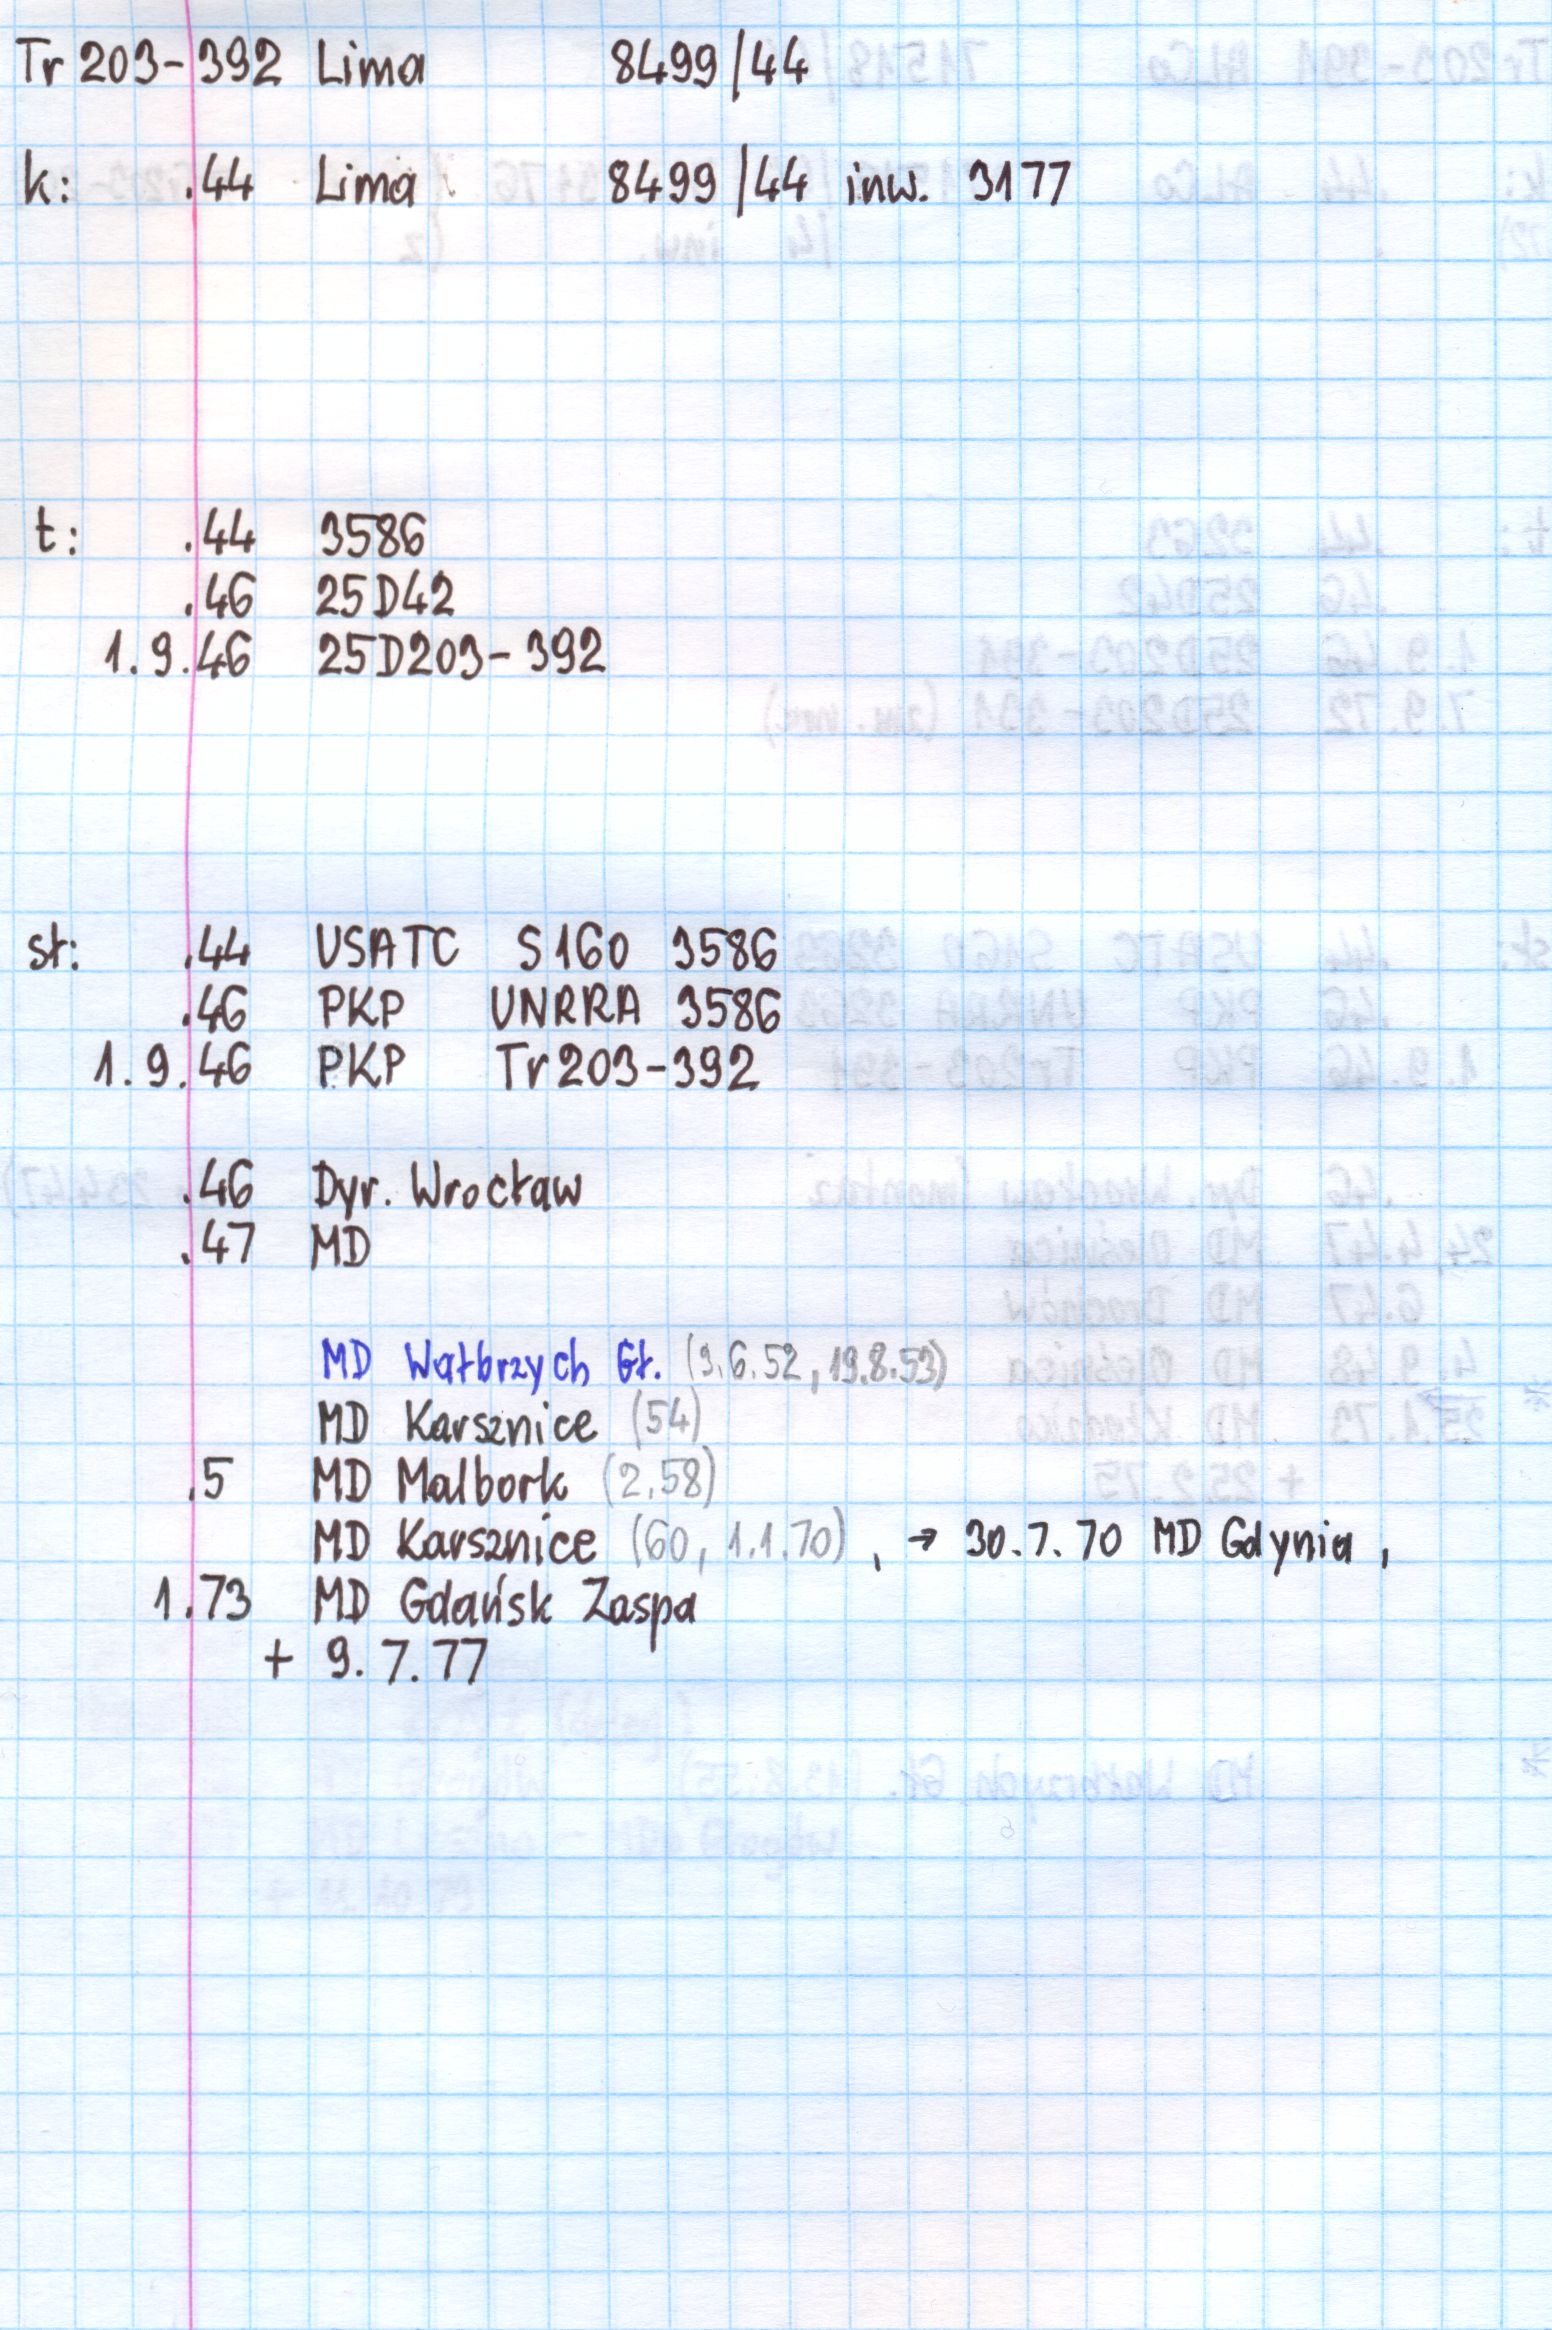 Tr 203-392 Lima 8499/44
k: .44 Lima 8499/44 inw. 3177
t: .44 3586
.46 25D42
1.9.46 25D203-392
st: .44 USATC S160 3586
.46 PKP UNRRA 3586
1.9.46 PKP Tr203-392
.46 Dyr. Wrocław
.47 MD
MD Wałbrzych Gł. (9.6.52, 19.8.53)
MD Karsznice (54)
.5 MD Malbork (2.58)
MD Karsznice (60, 1.1.70), → 30.7.70 MD Gdynia,
1.73 MD Gdańsk Zaspa
+ 9.7.77